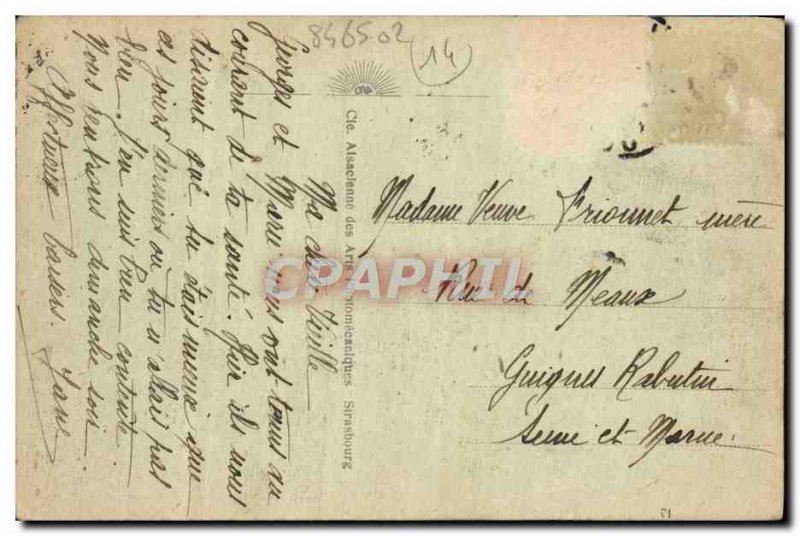 846502
14
Ma chère Vieille
Georges et Marie nous ont tenus au
courant de ta santé. Puis ils nous
disaient que tu étais mieux que
ces jours derniers où tu n'allais pas
bien. J'en suis bien contente
Nous rentrons dimanche soir.
Affectueux baisers. Jane
Cie. Alsacienne des Arts Photomécaniques Strasbourg
CPAPHIL
Madame Veuve Frionnet mère
Rue de Meaux
Guignes Rabutin
Seine et Marne.
17